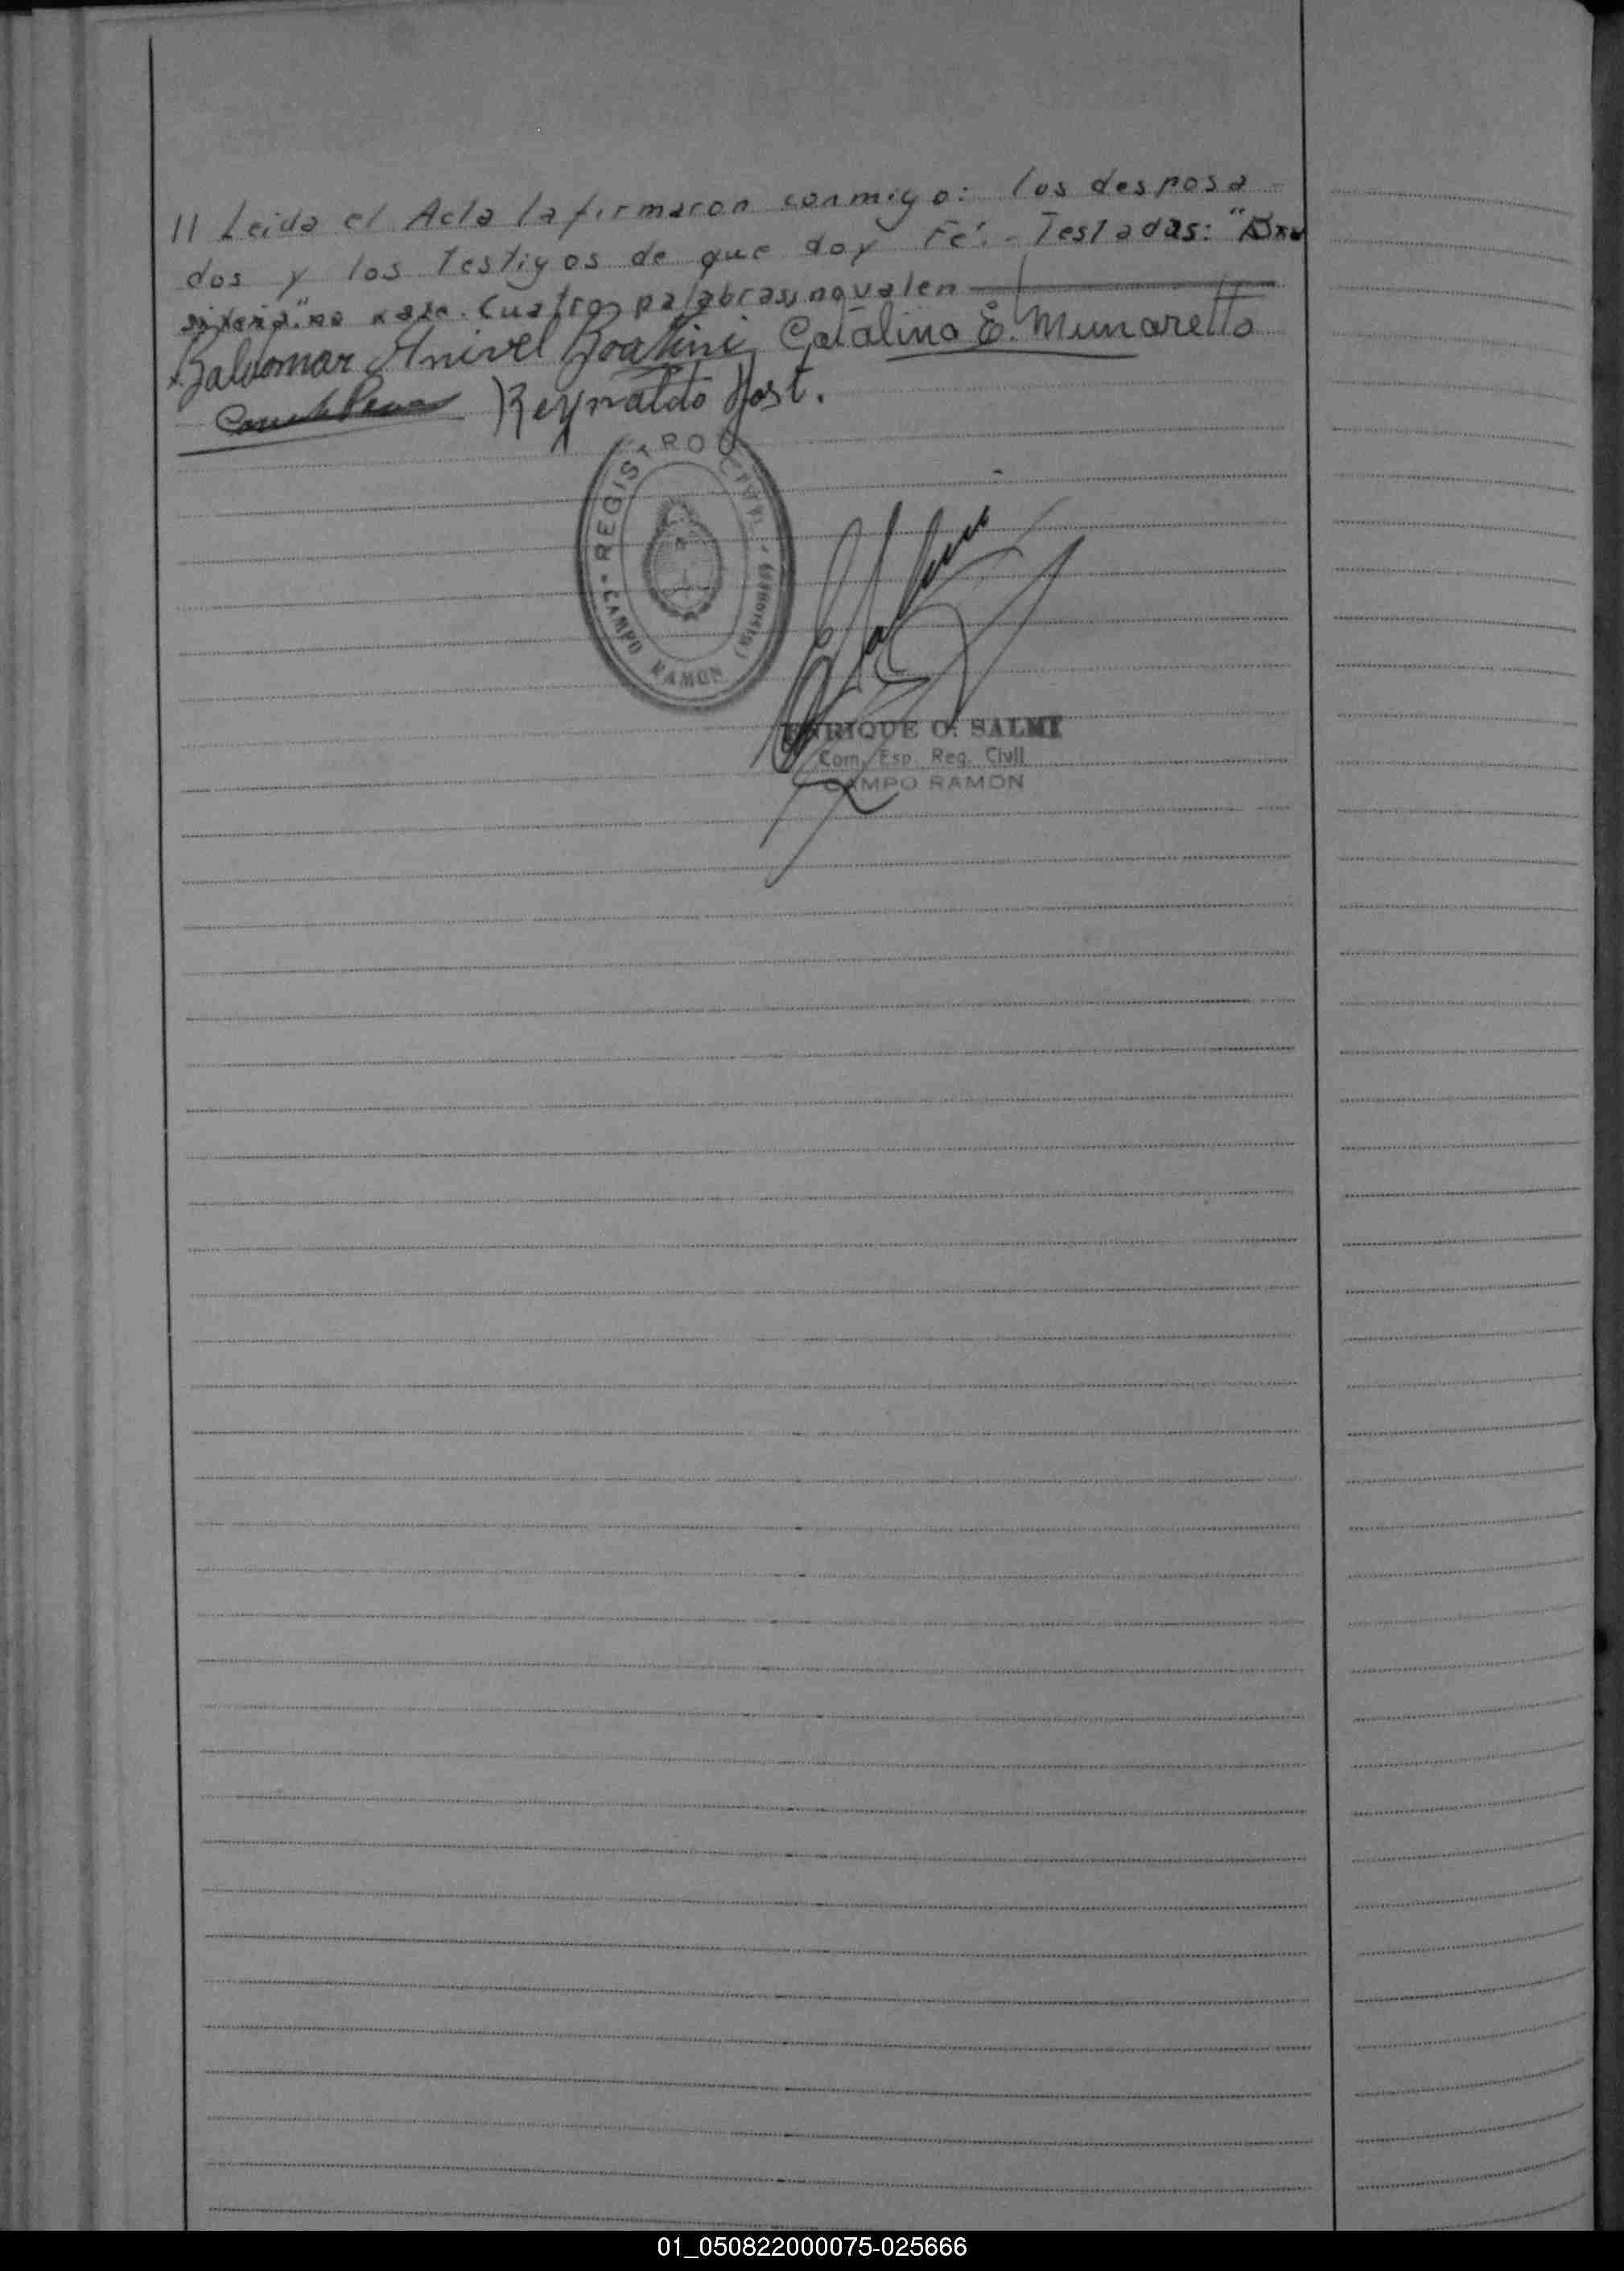 11 Leida el Acta la firmaron conmigo: los desposa-
dos y los testigos de que doy Fé.- Testadas: "
no vale. Cuatro palabras, no valen
Balvomar Anivel Boatini Catalina E. Munaretto
Reynaldo Host.
REGISTRO CIVIL - CAMPO RAMON (MISIONES)
ENRIQUE O. SALMI
Com. Esp. Reg. Civil
CAMPO RAMON
01_050822000075-025666